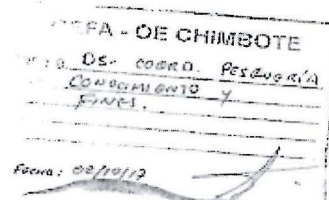 EFA - OE CHIMBOTE
DS- COORD. PESQUERÍA
CONOCIMIENTO Y
FINES.
Fecha: 02/10/17